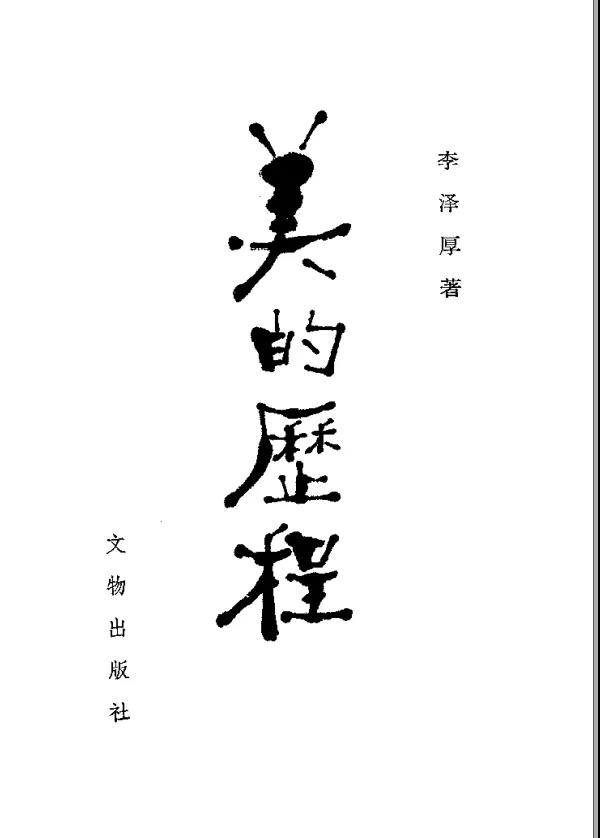 李泽厚著
美的歷程
文物出版社